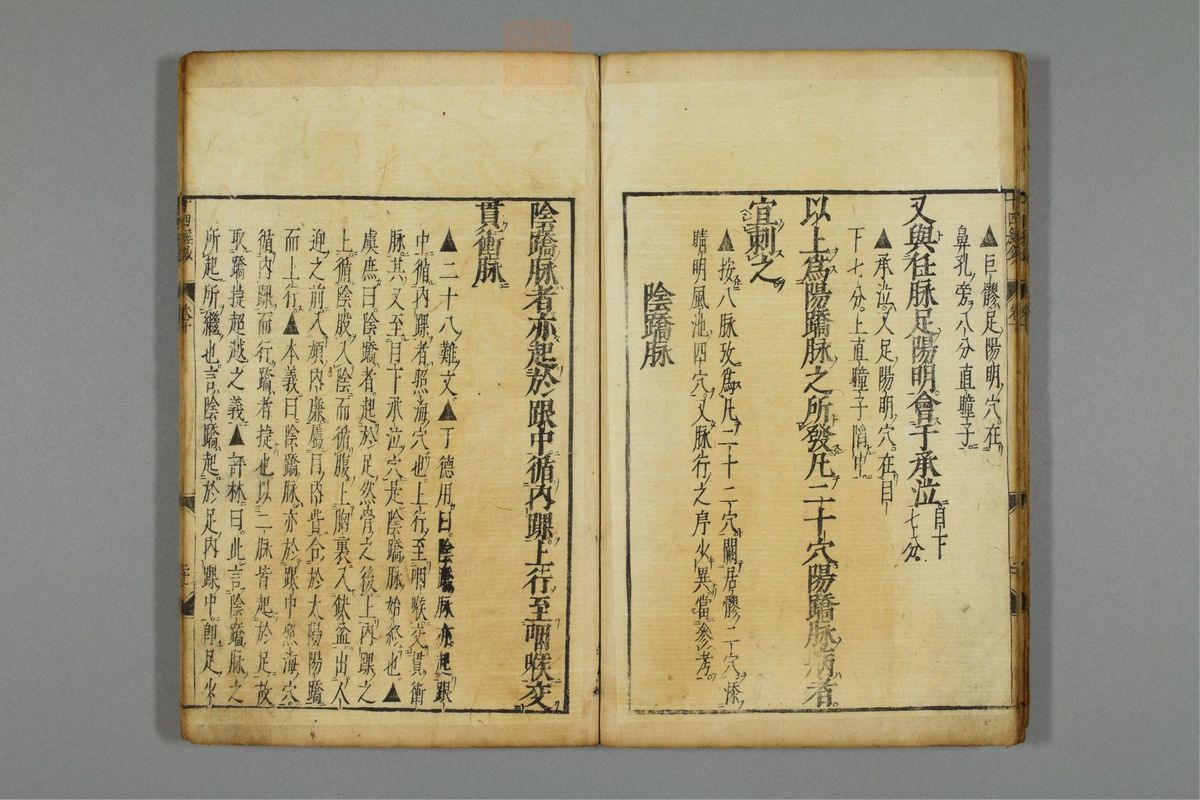 ▲巨髎足陽明穴在
鼻孔旁八分直瞳子
又與任脉足陽明會于承泣目下七分
▲承泣又足陽明穴在目
下七分上直瞳子陷中
以上爲陽蹻脉之所發凡二十穴陽蹻脉病者
宜刺之
▲按八脉攷爲凡二十二穴闕居髎二穴添
睛明風池四穴又脉行之序少異當參考
陰蹻脉
陰蹻脉者亦起於跟中循內踝上行至咽喉交
貫衝脉
▲二十八難文▲丁德用曰陰蹻脉亦起跟
中循內踝者照海穴也上行至咽喉交貫衝
脉其又至目下承泣穴是陰蹻脉始終也▲
虞庶曰陰蹻者起於足然骨之後上內踝之
上循陰股入陰而循腹上胸裏入缺盆出人
迎之前入頄內廉屬目內眥合於太陽陽蹻
而上行▲本義曰陰蹻脉亦於跟中照海穴
循內踝而行蹻者捷也以二脉皆起於足故
取蹻捷超越之義▲評林曰此言陰蹻脉之
所起所繼也言陰蹻起於足內踝中即足少